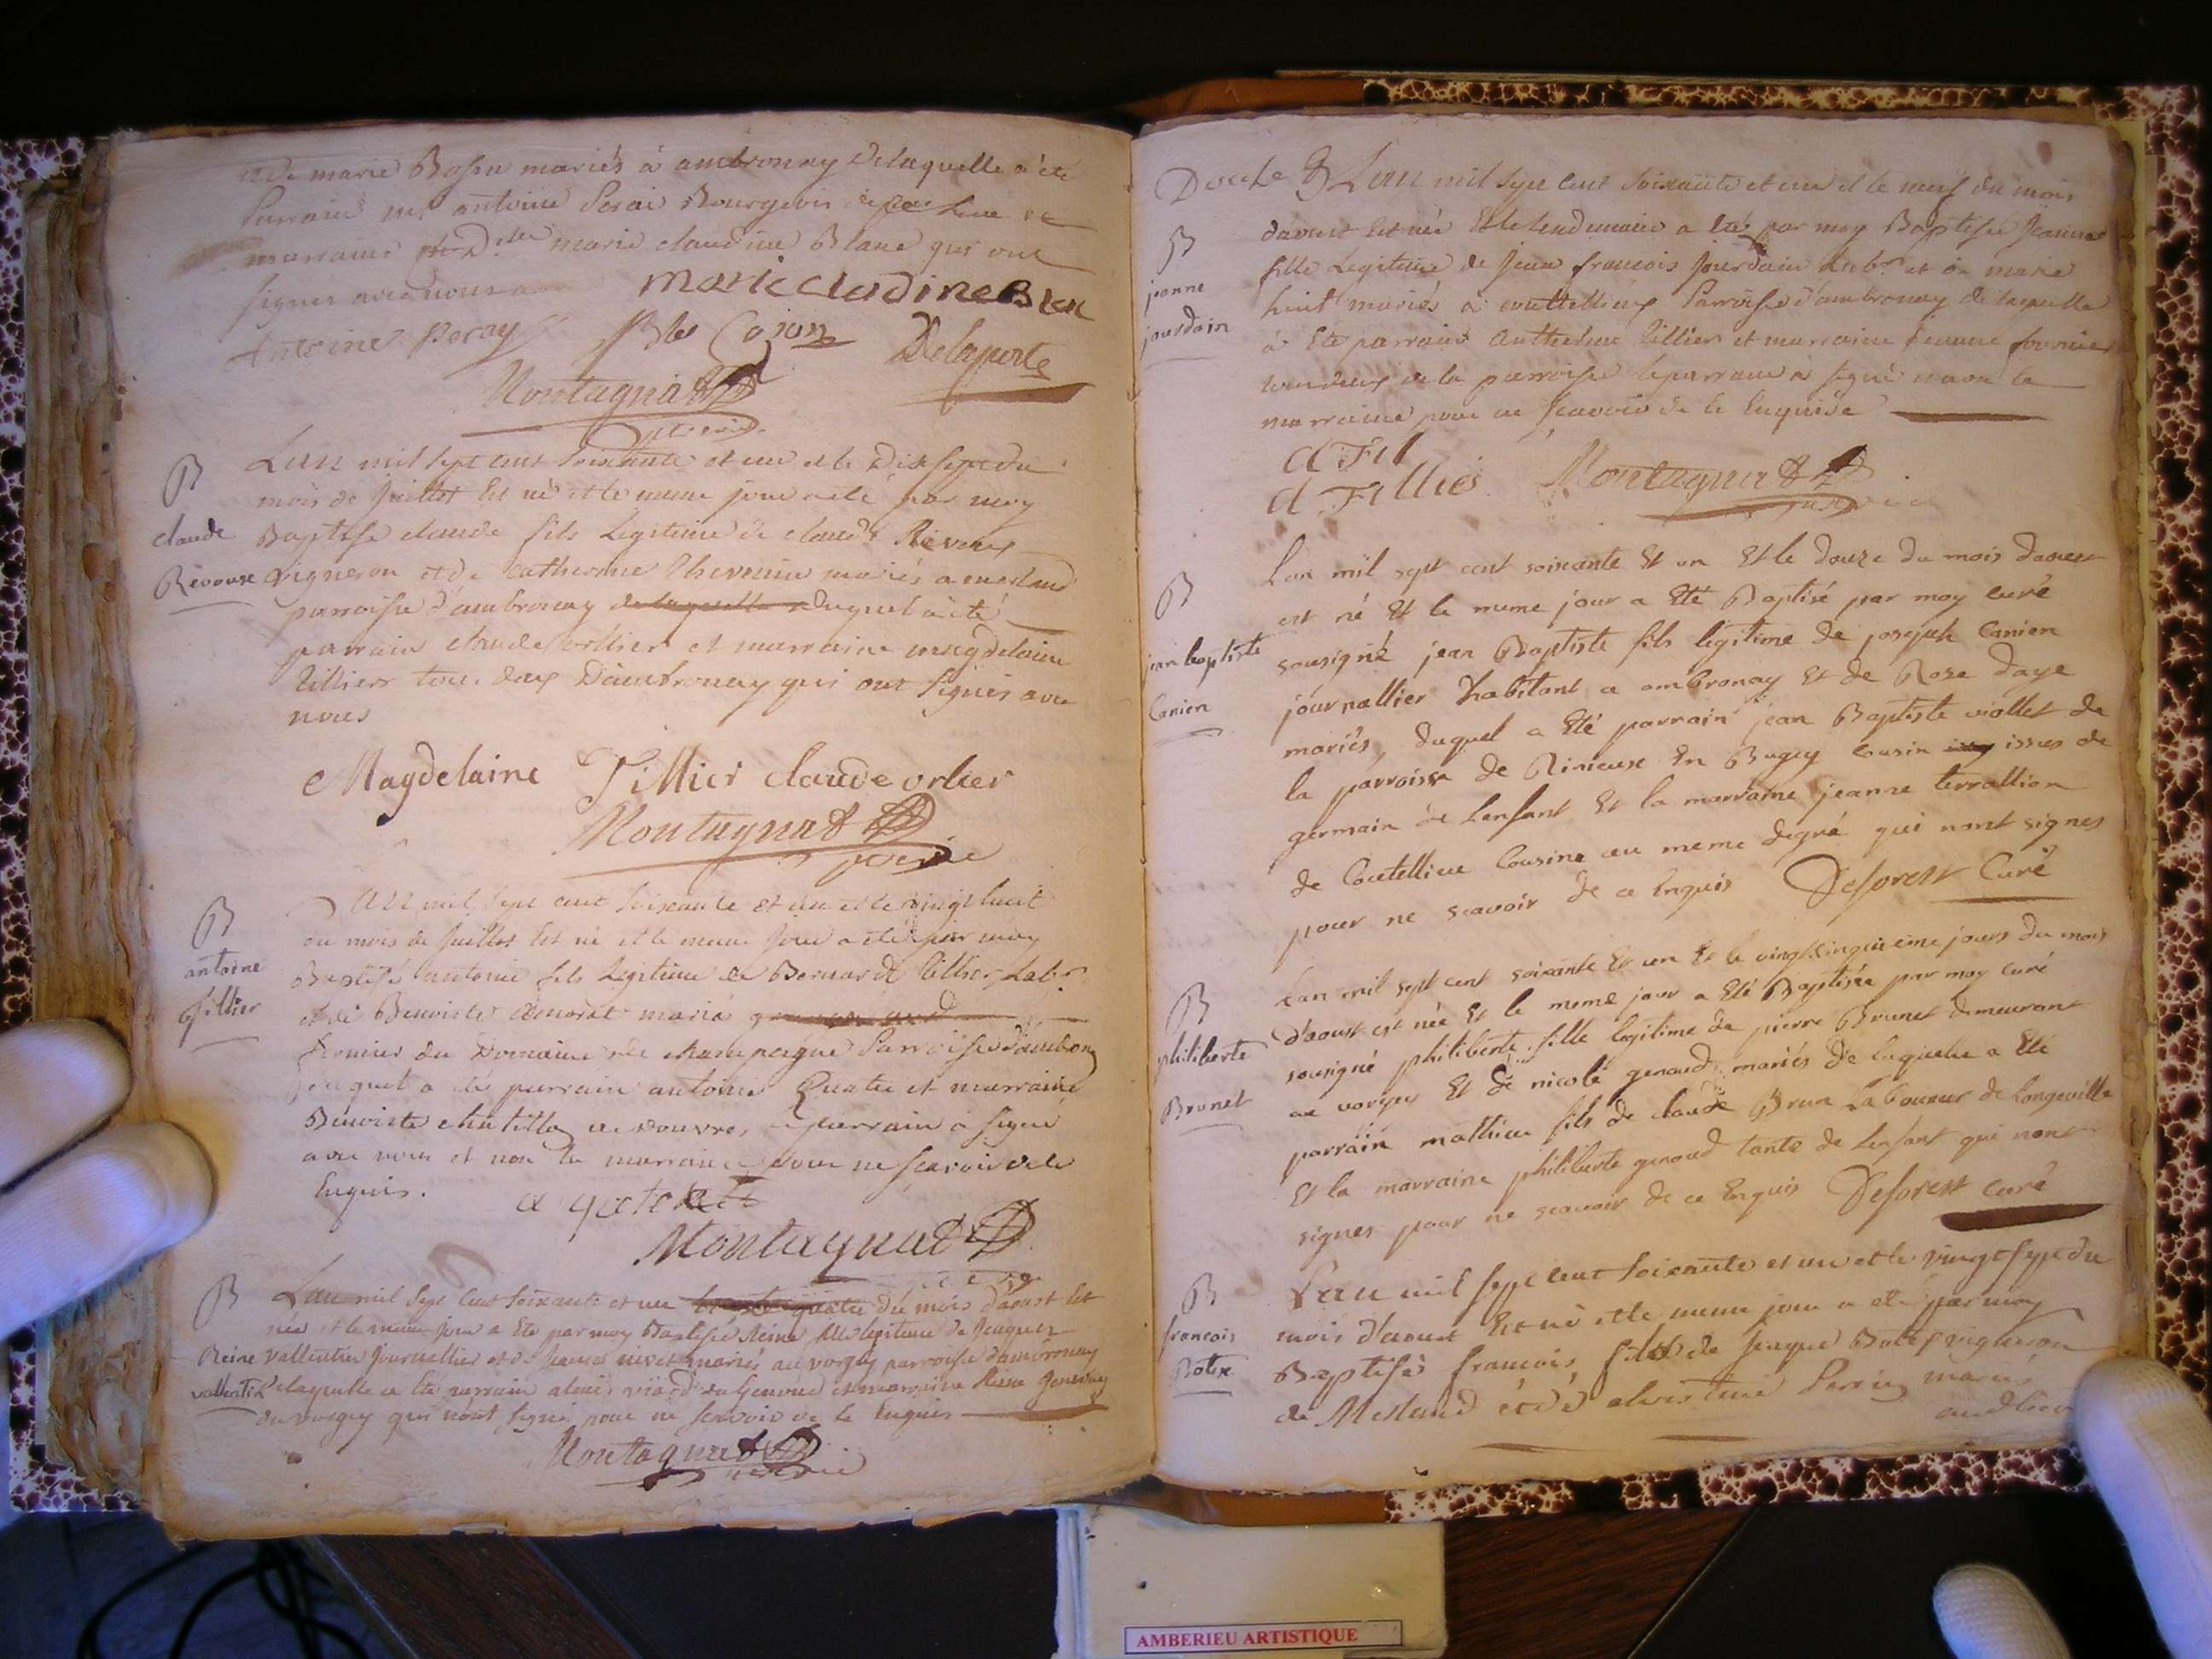 et de marie Bossu mariés à ambronay delaquelle a été
parrain mr antoine Perai Bourgeois et
marraine Dlle marie claudine Blanc qui ont
signes avec nous
marie cladine Blan
Antoine peray Cojon Delaporte
Montagnat
vicaire
B
Lan mil sept cent soixante et un et le dix sept du
mois de Juillet Est né et le meme jour a eté par moy
claude Baptisé claude fils Legitime de claude Révoux
Révoux vigneron et de catherine Thevenin mariés a merland
parroisse d'ambronay duquel a été
parrain claude orllier et marraine magdelaine
tillier tous deux D'ambronay qui ont signés avec
nous
Magdelaine Tillier claude orlier
Montagnat
vicaire
B
Lan mil sept cent soixante et un et le vingt huit
du mois de Juillet Est né et le meme jour a eté par moy
antoine
tillier
Baptisé antoine fils Legitime de Bernard tillier Labr
et de Benoiste mariés
fermier du Domaine de champagne Parroisse d'ambronay
duquel a été parrain antoine Quatre et marraine
Benoiste chatillon de douvres le parrain a signé
avec nous et non la marraine pour ne sçavoir de ce
Enquis.
Montagnat
vicaire
B Lan mil sept cent soixante et un du mois d'aoust Est
née et le meme jour a été par moy Baptisée Reine fille legitime de Jacques
Reine vallentin Journallier et de mariés au vorgey parroisse d'ambronay
vallentin delaquelle a été parrain et marraine Reine
du vorgey qui n'ont signé pour ne scavoir de ce Enquis
Montagnat
vicaire
Double B Lan mil sept cent soixante et un et le neuf du mois
B
jeanne
jourdain
daoust Est née Et le lendemain a été par moy Baptisée Jeanne
fille Legitime de Jean francois Jourdain Labr et de marie
huit mariés à couttellieux Parroisse d'ambronay de laquelle
à Eté parrain Anthelme tillier et marraine Jeanne fournier
tous deux de la parroisse le parrain à signé et non la
marraine pour ne sçavoir de ce Enquise
A Fil
A Fillier Montagnat
vicaire
B
jean baptiste
Canien
Lan mil sept cent soixante Et un Et le douze du mois daoust
est né Et le meme jour a Eté Baptisé par moy curé
sousigné jean Baptiste fils legitime de joseph Canien
journallier habitant a ambronay Et de Rose daye
mariés, duquel a Eté parrain jean Baptiste viollet de
la parroisse de Rinieux En Bugey Cousin issus de
germain de Lenfant Et la marraine jeanne terrallion
de Coutellieu Cousine au meme degré qui nont signes
pour ne scavoir de ce Enquis Deforest Curé
B
philiberte
Brunet
Lan mil sept cent soixante Et un Et le vingt cinquieme jours du mois
d'aoust est née Et le meme jour a Eté Baptisée par moy curé
sousigné philiberte fille legitime de pierre Brunet demeurant
au vorgey Et de nicole genaud mariés de laquelle a Eté
parrain mathieu fils de claude Brun Laboureur de Longeville
Et la marraine philiberte genoud tante de lenfant qui nont
signes pour ne scavoir de ce Enquis Deforest curé
B
francois
Lan mil sept cent soixante et un et le vingt sept du
mois d'aoust Est né et le meme jour a eté par moy
Baptisés francois fils de Jaque vigneron
de Merland et de Perrin mariés
audlieu
AMBERIEU ARTISTIQUE